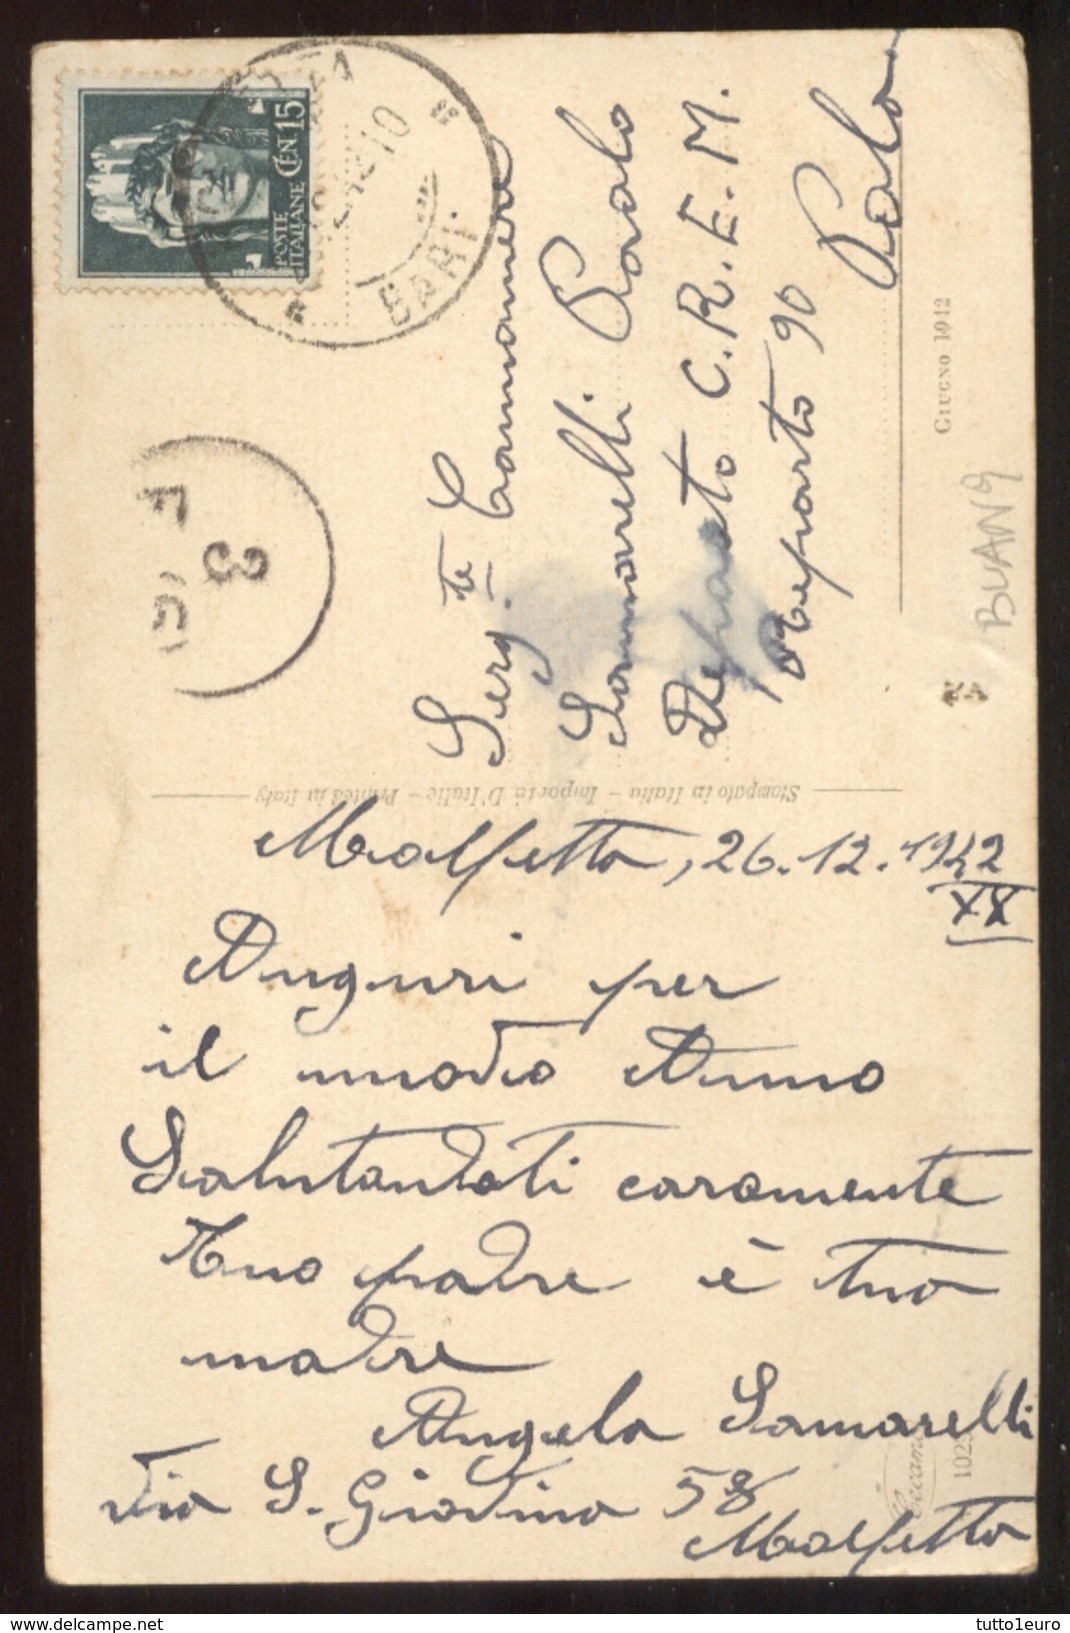 POSTE ITALIANE CEN 15
BARI
3
Serg.te Cannoniere
Samarelli Paolo
Deposito C.R.E.M.
Reparto 90 Pola
GIUGNO 1942
BUAN9
Stampato in Italia - Importé D'Italie - Printed in Italy
Molfetta, 26.12.1942
XX
Auguri per
il nuovo Anno
Salutandoti caramente
Tuo padre è tua
madre
Angela Samarelli
Via S. Giovina 58
Molfetta
tutto1euro